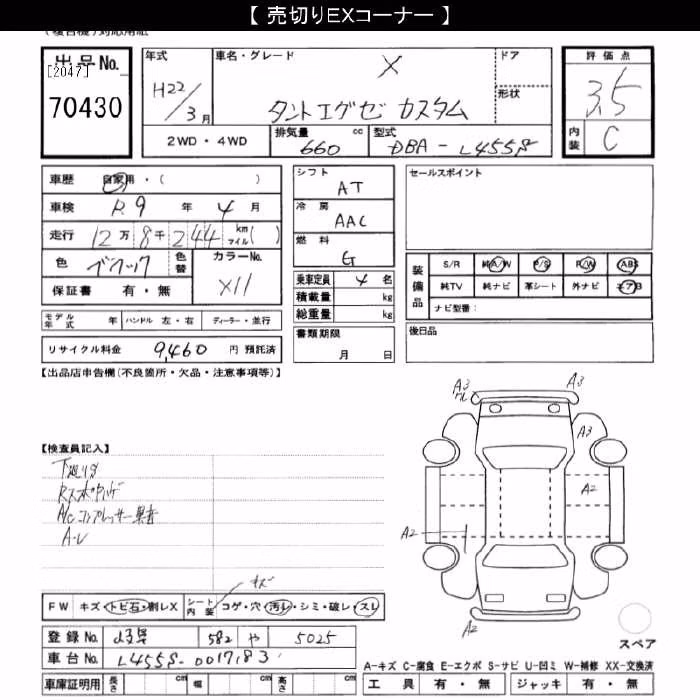 【 売切りEXコーナー 】
出品No.
[2047]
70430
年式
H22/3月
車名・グレード
X
タントエグゼ カスタム
ドア
形状
2WD・4WD
排気量
660 cc
型式
DBA-L455S
評価点
3.5
内装
C
車歴 自家用・( )
車検 R.9 年 4 月
走行 12万8千244 km マイル( )
色
色替
カラーNo.
X11
保証書 有・無
モデル年式 年 ハンドル 左・右 ディーラー・並行
リサイクル料金 9,460 円 預託済
シフト
AT
冷房
AAC
燃料
G
乗車定員 4 名
積載量 kg
総重量 kg
書類期限
月 日
セールスポイント
装備品
S/R 純A/W P/S P/W ABS
純TV 純ナビ 革シート 外ナビ エアB
ナビ型番:
後日品
【出品店申告欄(不良箇所・欠品・注意事項等)】
【検査員記入】
下廻りサ
A/Cコンプレッサー異音
A3
A3
A3
A2
A2
A2
キズ
FW キズ・トビ石・割レX
シート内装 コゲ・穴・汚レ・シミ・破レ・スレ
登録No. 岐阜 582 や 5025
車台No. L455S-0017183
車庫証明用 長さ cm 幅 cm 高さ cm
スペア
A-キズ C-腐食 E-エクボ S-サビ U-凹ミ W-補修 XX-交換済
工具 有・無 ジャッキ 有・無